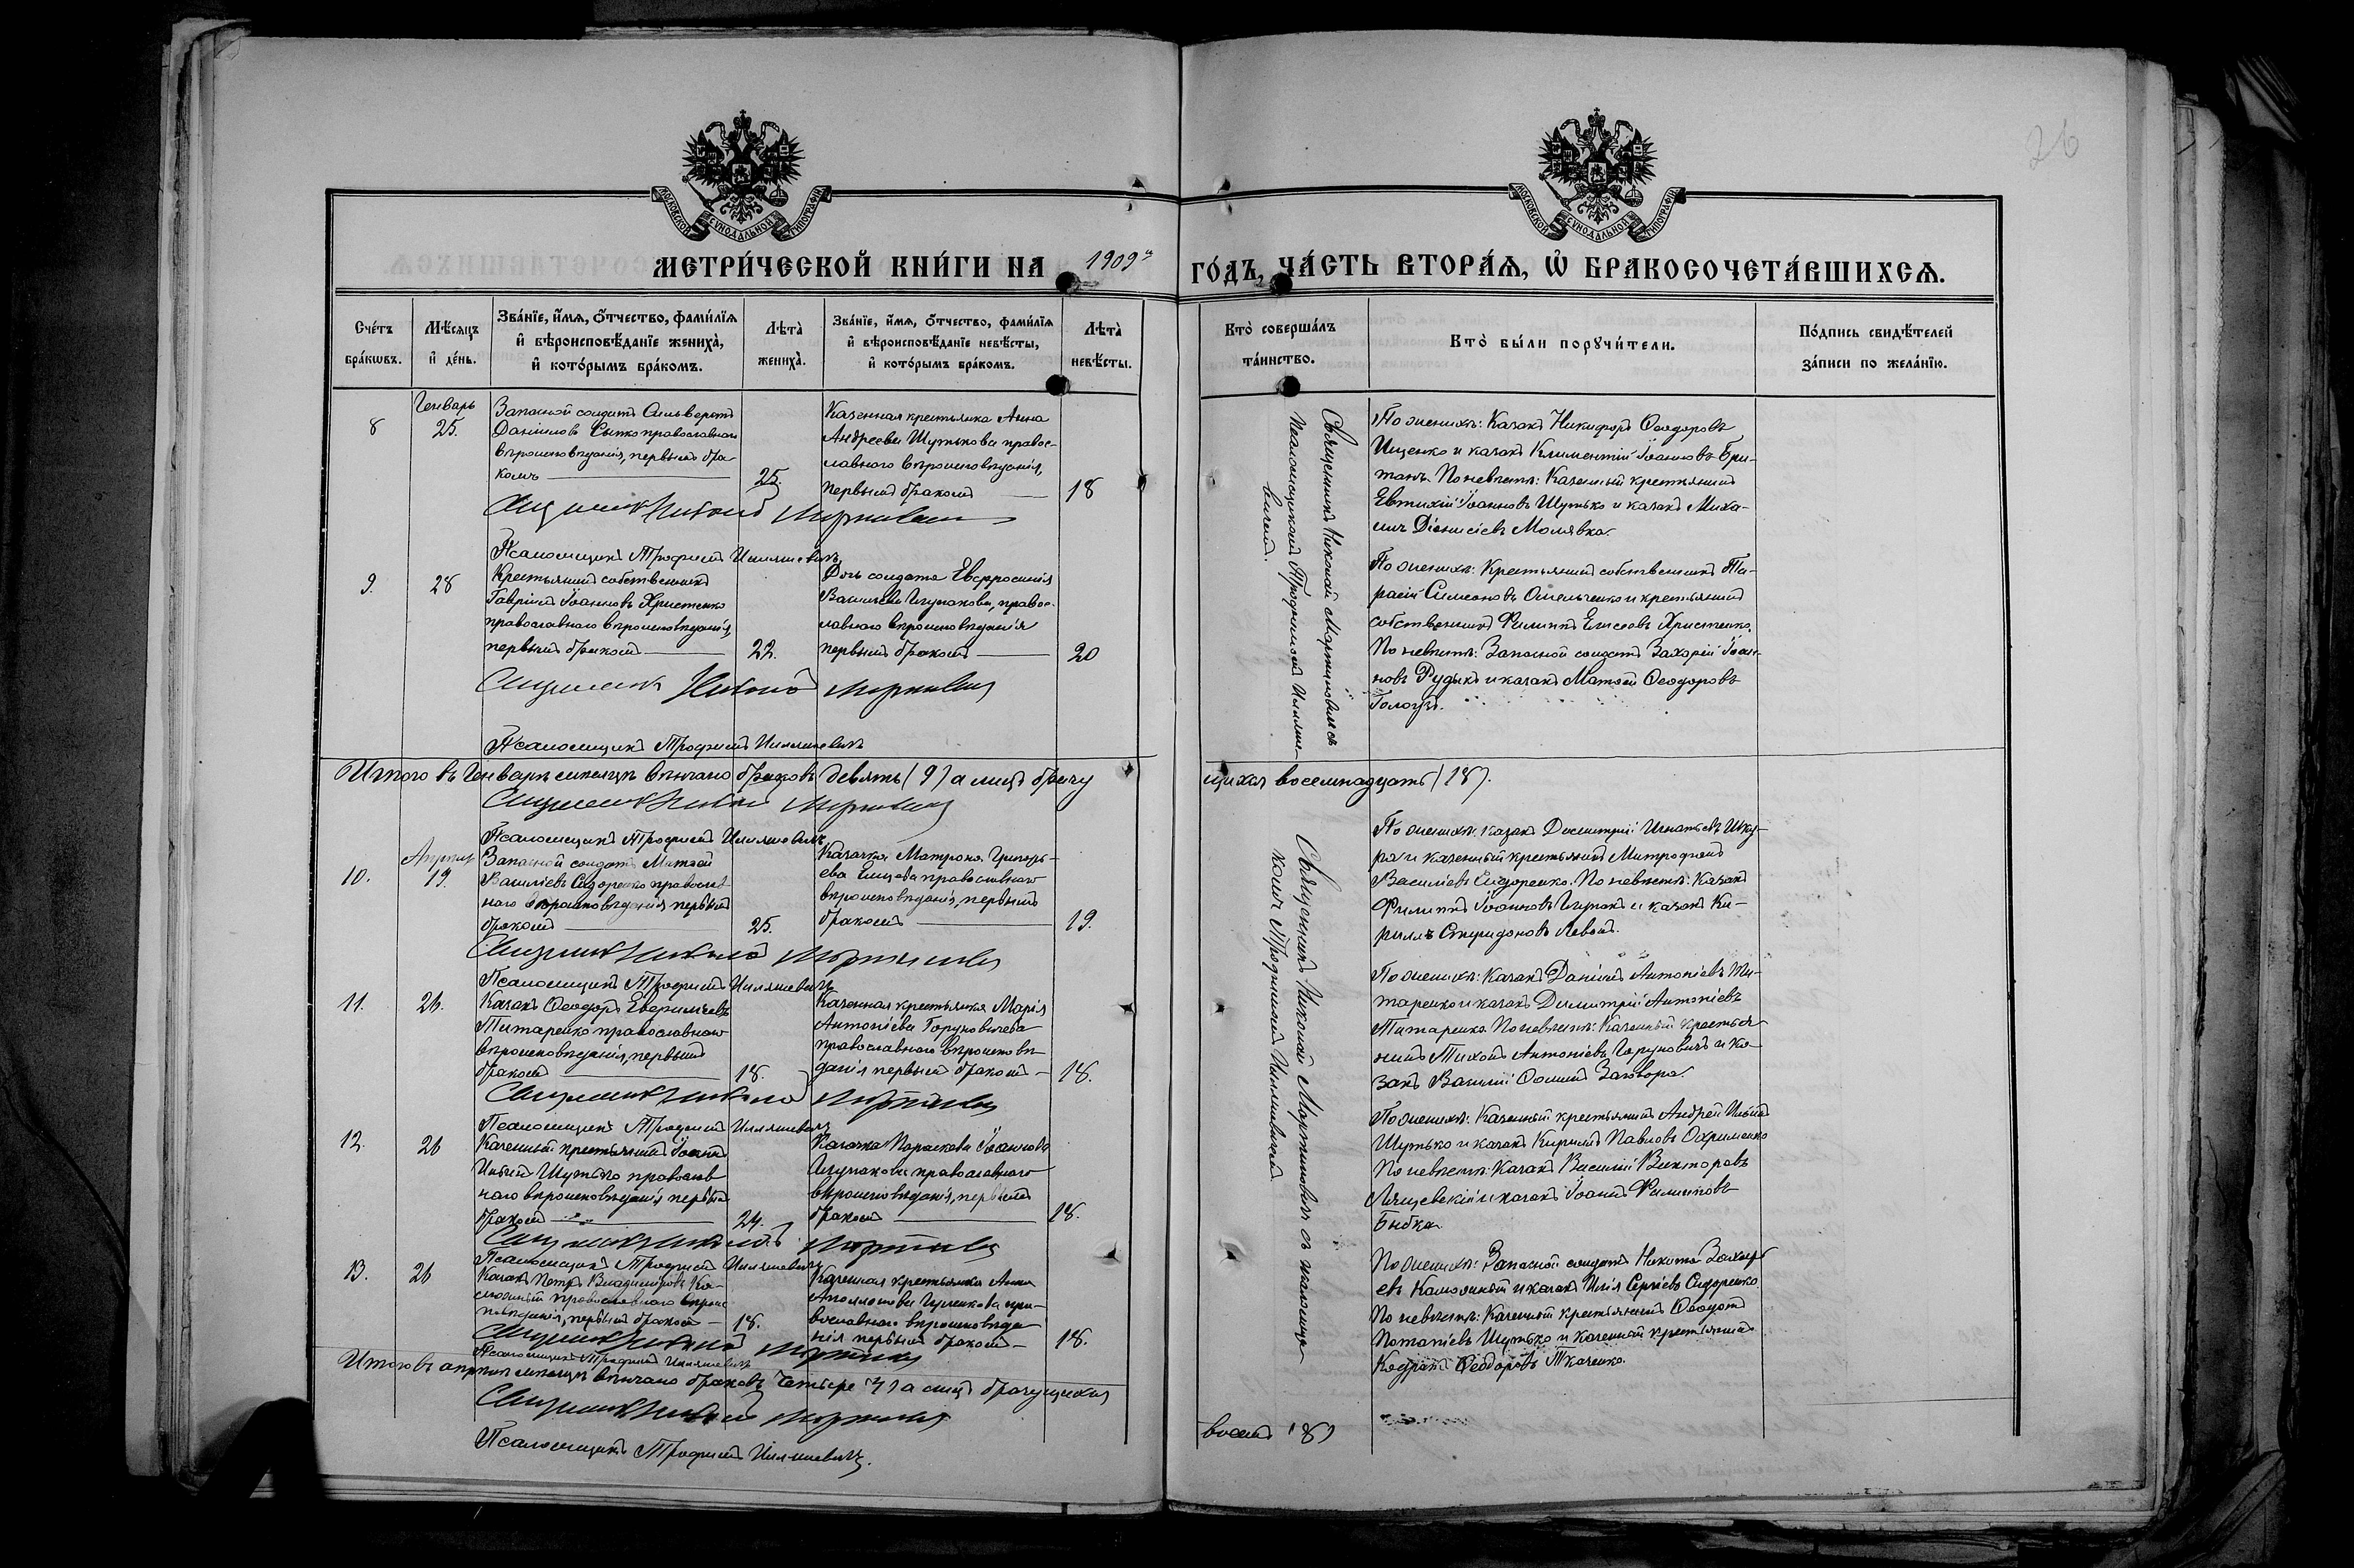 26
МОСКОВСКОЙ СУНОДАЛЬНОЙ ТИПОГРАФІИ
МОСКОВСКОЙ СУНОДАЛЬНОЙ ТИПОГРАФІИ
МЕТРИ́ЧЕСКОЙ КНИ́ГИ НА 1909й ГО́ДЪ, ЧА́СТЬ ВТОРА́Ѧ, Ѽ БРАКОСОЧЕТА́ВШИХСѦ.
Сче́тъ
бра́кѡвъ.
Мѣ́сѧцъ
и҆ де́нь.
Зва́нїе, и҆́мѧ, ѻ҆́тчество, фами́лїѧ
и҆ вѣроисповѣ́данїе жениха̀,
и҆ кото́рымъ бра́комъ.
Лѣта̀
жениха̀.
Зва́нїе, и҆́мѧ, ѻ҆́тчество, фами́лїѧ
и҆ вѣроисповѣ́данїе невѣ́сты,
и҆ кото́рымъ бра́комъ.
Лѣта̀
невѣ́сты.
Кто̀ соверша́лъ
та́инство.
Кто̀ бы́ли порꙋчи́тели.
По́дпись свидѣ́телей
за́писи по жела́нїю.
8
Генварь
25.
Запасной солдатъ Сильверстъ
Даніиловъ Сытко православнаго
вѣроисповѣданія, первымъ бра-
комъ
25.
Казенная крестьянка Анна
Андреева Шутькова правос-
лавнаго вѣроисповѣданія,
первымъ бракомъ
18
Священникомъ Николай Мартиновичъ съ
Псаломщикомъ Трофимомъ Илляше-
вичемъ.
По женихѣ: Казакъ Никифоръ Ѳеодоровъ
Ищенко и казакъ Климентій Іоанновъ Бри-
танъ. По невѣстѣ: Казенный крестьянинъ
Евтихій Іоанновъ Шутько и казакъ Миха-
илъ Діонисіевъ Молявка.
Священникъ Николай Мартиновичъ
Псаломщикъ Трофимъ Илляшевичъ
9.
28
Крестьянинъ собственникъ
Гавріилъ Іоанновъ Христенко
православнаго вѣроисповѣданія,
первымъ бракомъ
22.
Дочь солдата Евфросинія
Васильева Чупакова, правос-
лавнаго вѣроисповѣданія
первымъ бракомъ
20
По женихѣ: Крестьянинъ собственникъ Та-
расій Симеоновъ Омельченко и крестьянинъ
собственникъ Филиппъ Елисеевъ Христенко.
По невѣстѣ: Запасной солдатъ Захарій Іоан-
новъ Рудыкъ и казакъ Матѳей Ѳеодоровъ
Священникъ Николай Мартиновичъ
Псаломщикъ Трофимъ Илляшевичъ
Итого въ Генварѣ мѣсяцѣ вѣнчано браковъ девять (9) а лицъ брачу
щихся восемнадцать (18).
Священникъ Николай Мартиновичъ
Псаломщикъ Трофимъ Илляшевичъ
10.
Апрѣль
19.
Запасной солдатъ Матѳей
Василіевъ Сидоренко православ
наго вѣроисповѣданія первымъ
бракомъ
25.
Казачка Матрона Григорь-
ева православнаго
вѣроисповѣданія, первымъ
бракомъ
19.
Священникъ Николай Мартиновичъ съ псаломщи-
комъ Трофимомъ Илляшевичемъ
По женихѣ: казакъ Димитрій Игнатьевъ Шку-
ра и казенный крестьянинъ Митрофанъ
Василіевъ Сидоренко. По невѣстѣ: Казакъ
Филиппъ Іоанновъ Чупакъ и казакъ Ки-
риллъ Спиридоновъ Левонъ.
Священникъ Николай Мартиновичъ
Псаломщикъ Трофимъ Илляшевичъ
11.
26.
Казакъ Ѳеодоръ
Титаренко православнаго
вѣроисповѣданія, первымъ
бракомъ
18.
Казенная крестьянка Марія
Антоніева Горуновичева
православнаго вѣроисповѣ-
данія первымъ бракомъ
18.
По женихѣ: казакъ Даніилъ Антоніевъ Ти-
таренко и казакъ Димитрій Антоніевъ
Титаренко. По невѣстѣ: Казенный крестья-
нинъ Тихонъ Антоніевъ Горуновичъ и ка-
закъ Василій Ѳоминъ Заговора.
Священникъ Николай Мартиновичъ
Псаломщикъ Трофимъ Илляшевичъ
12.
26
Казенный крестьянинъ Іоаннъ
Ильинъ Шутько православ
наго вѣроисповѣданія первымъ
бракомъ
24.
Казачка Параскева Іоаннова
Чупакова православнаго
вѣроисповѣданія, первымъ
бракомъ
18.
По женихѣ: Казенный крестьянинъ Андрей Ильинъ
Шутько и казакъ Кириллъ Павловъ Охрименко
По невѣстѣ: Казакъ Василій Викторовъ
Лящевскій и казакъ Іоаннъ Филипповъ
Бибка.
Священникъ Николай Мартиновичъ
Псаломщикъ Трофимъ Илляшевичъ
13.
26
Казакъ Петръ Владиміровъ Ка-
православнаго вѣрои
повѣданія, первымъ бракомъ
18.
Казенная крестьянка Анна
пра-
вославнаго вѣроисповѣда
нія первымъ бракомъ
18.
По женихѣ: Запасной солдатъ Никита Захар
евъ и казакъ Илія Сергіевъ Сидоренко
По невѣстѣ: Казенный крестьянинъ Ѳеодотъ
Потапіевъ Шутько и казенный крестьянинъ
Кодратъ Ѳеодоровъ Ткаченко.
Священникъ Николай Мартиновичъ
Псаломщикъ Трофимъ Илляшевичъ
Итого въ апрѣлѣ мѣсяцѣ вѣнчано браковъ четыре (4) а лицъ брачущихся
восемь (8)
Священникъ Николай Мартиновичъ
Псаломщикъ Трофимъ Илляшевичъ.